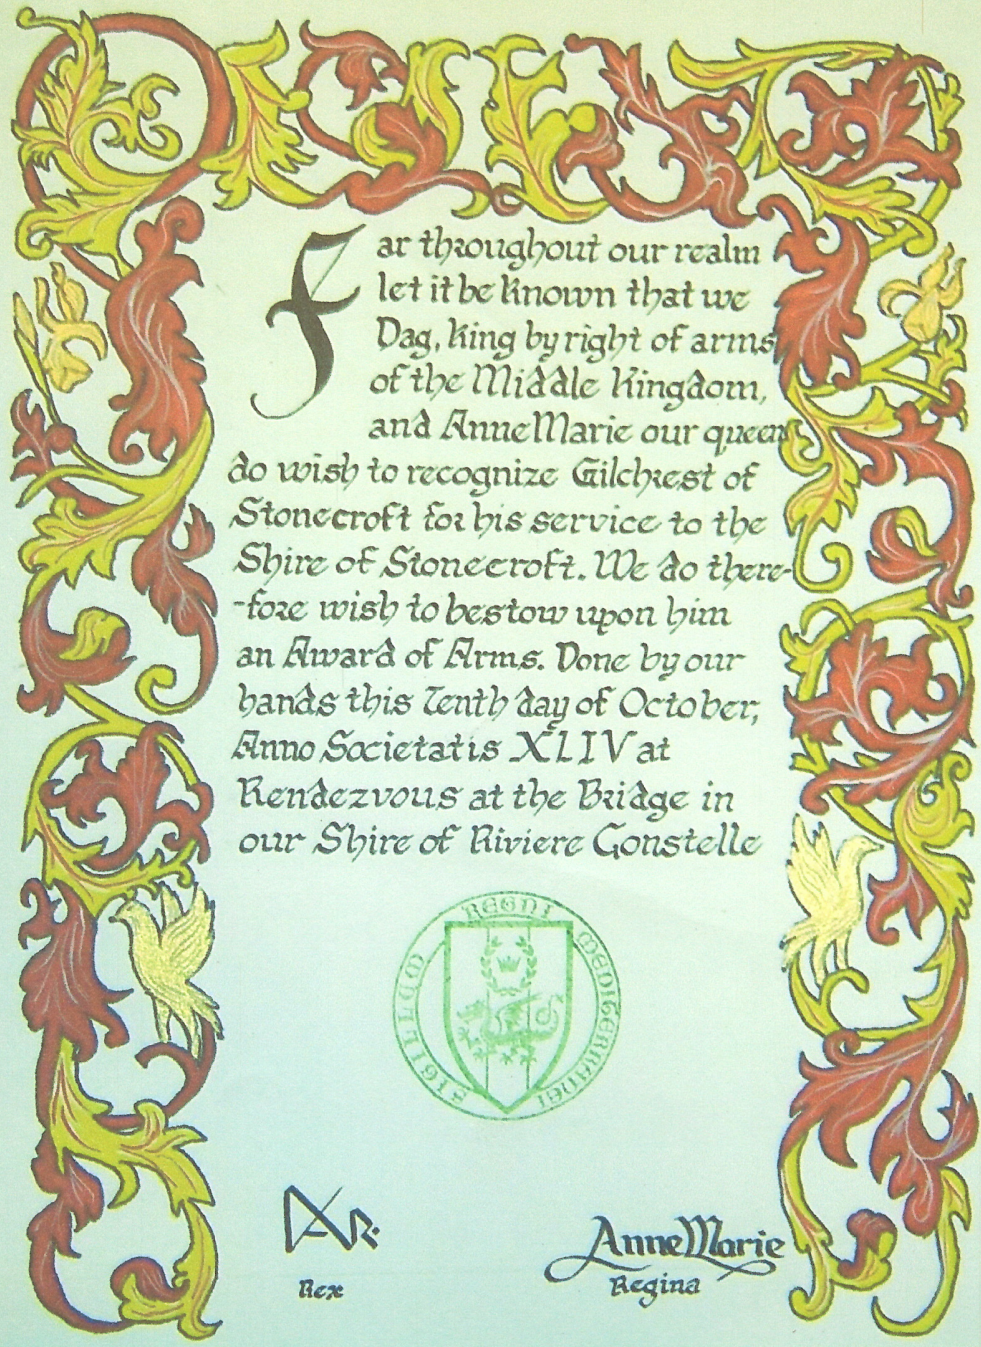 Far throughout our realm
let it be known that we
Dag, king by right of arms
of the Middle Kingdom,
and AnneMarie our queen
do wish to recognize Gilchrest of
Stonecroft for his service to the
Shire of Stonecroft. We do there-
-fore wish to bestow upon him
an Award of Arms. Done by our
hands this Tenth day of October,
Anno Societatis XLIV at
Rendezvous at the Bridge in
our Shire of Riviere Constelle
SIGILLUM REGNI MEDITERRANEI
Rex
AnneMarie
Regina